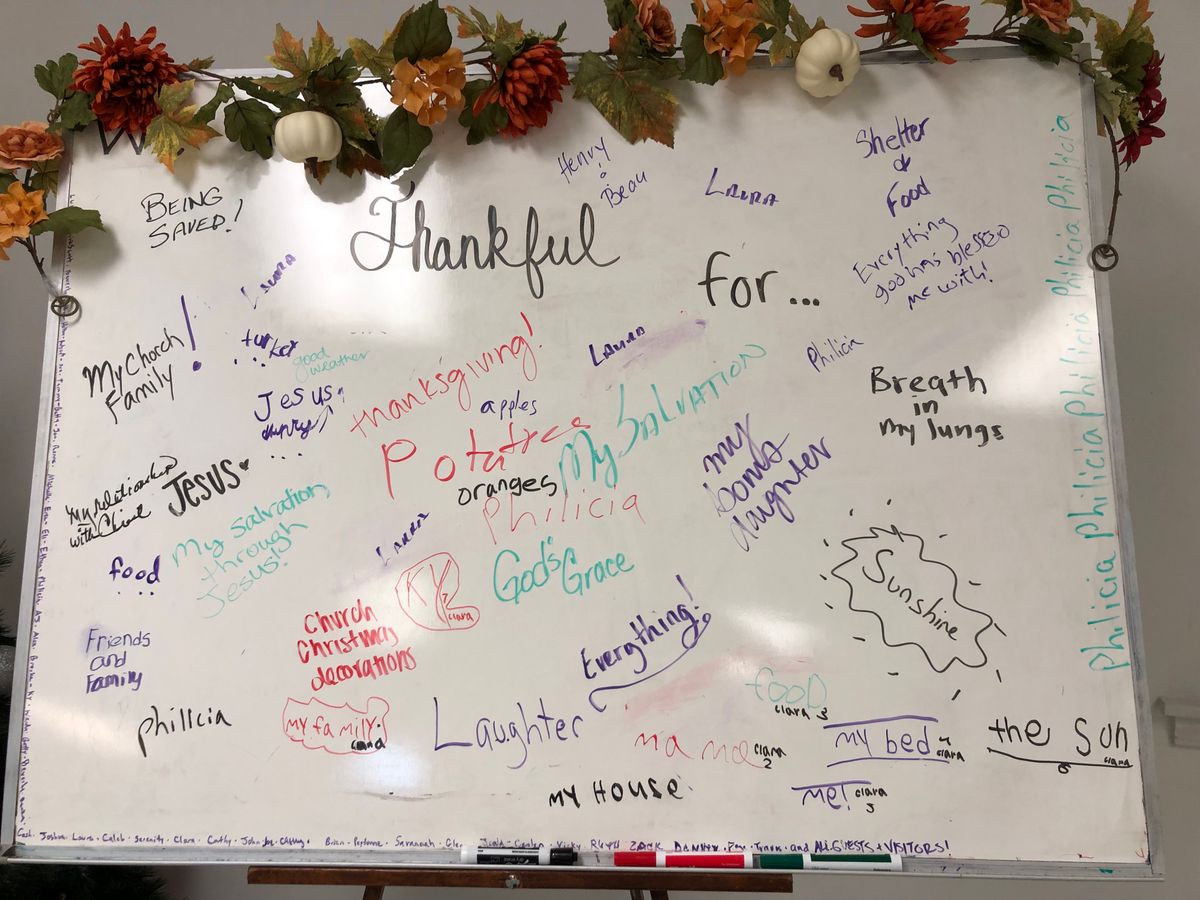 Henry
&
Beau
LAURA
Shelter
&
Food
BEING
SAVED!
Thankful
for...
Everything
god has blessed
me with!
LAURA
My Church
Family!
turkey
good
weather
Jesus
thanksgiving!
LAURA
Philicia
apples
Breath
in
my lungs
Potatoes
My SALVATION
my
bonus
daughter
oranges
My relationship
with Christ
JESUS
Philicia
My Salvation
through
Jesus!
LAURA
food
God's Grace
KY
clara
Sunshine
Church
Christmas
decorations
Everything!
Friends
and
Family
food
clara 3
phillicia
my family.
clara
Laughter
mama
clara
2
my bed
clara
the Sun
clara
my House
me!
clara
3
Philicia Philicia Philicia Philicia Philicia Philicia
Joshua · Laura · Caleb · Serenity · Clara · Cathy · John
Savannah
Vicky RUTH ZACK DANNY
and ALL GUESTS + VISITORS!